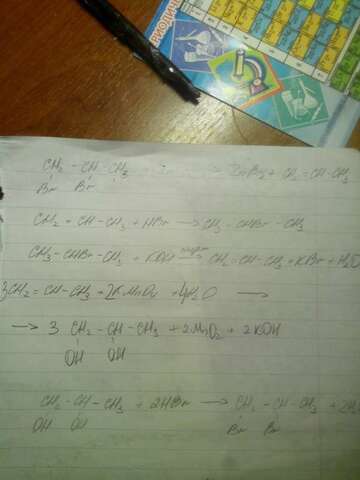 CH₂ - CH - CH₃ ZnBr₂ + CH₂ = CH-CH₃
Br Br
CH₂ = CH - CH₃ + HBr → CH₃ - CHBr - CH₃
CH₃-CHBr - CH₃ + KOH → CH₂ = CH-CH₃ + KBr + H₂O
3CH₂ = CH-CH₃ + 2KMnO₄ + 4H₂O →
→ 3 CH₂ - CH - CH₃ + 2MnO₂ + 2KOH
OH OH
CH₂ - CH - CH₃ + 2HBr → CH₂ - CH - CH₃ +
OH OH Br Br